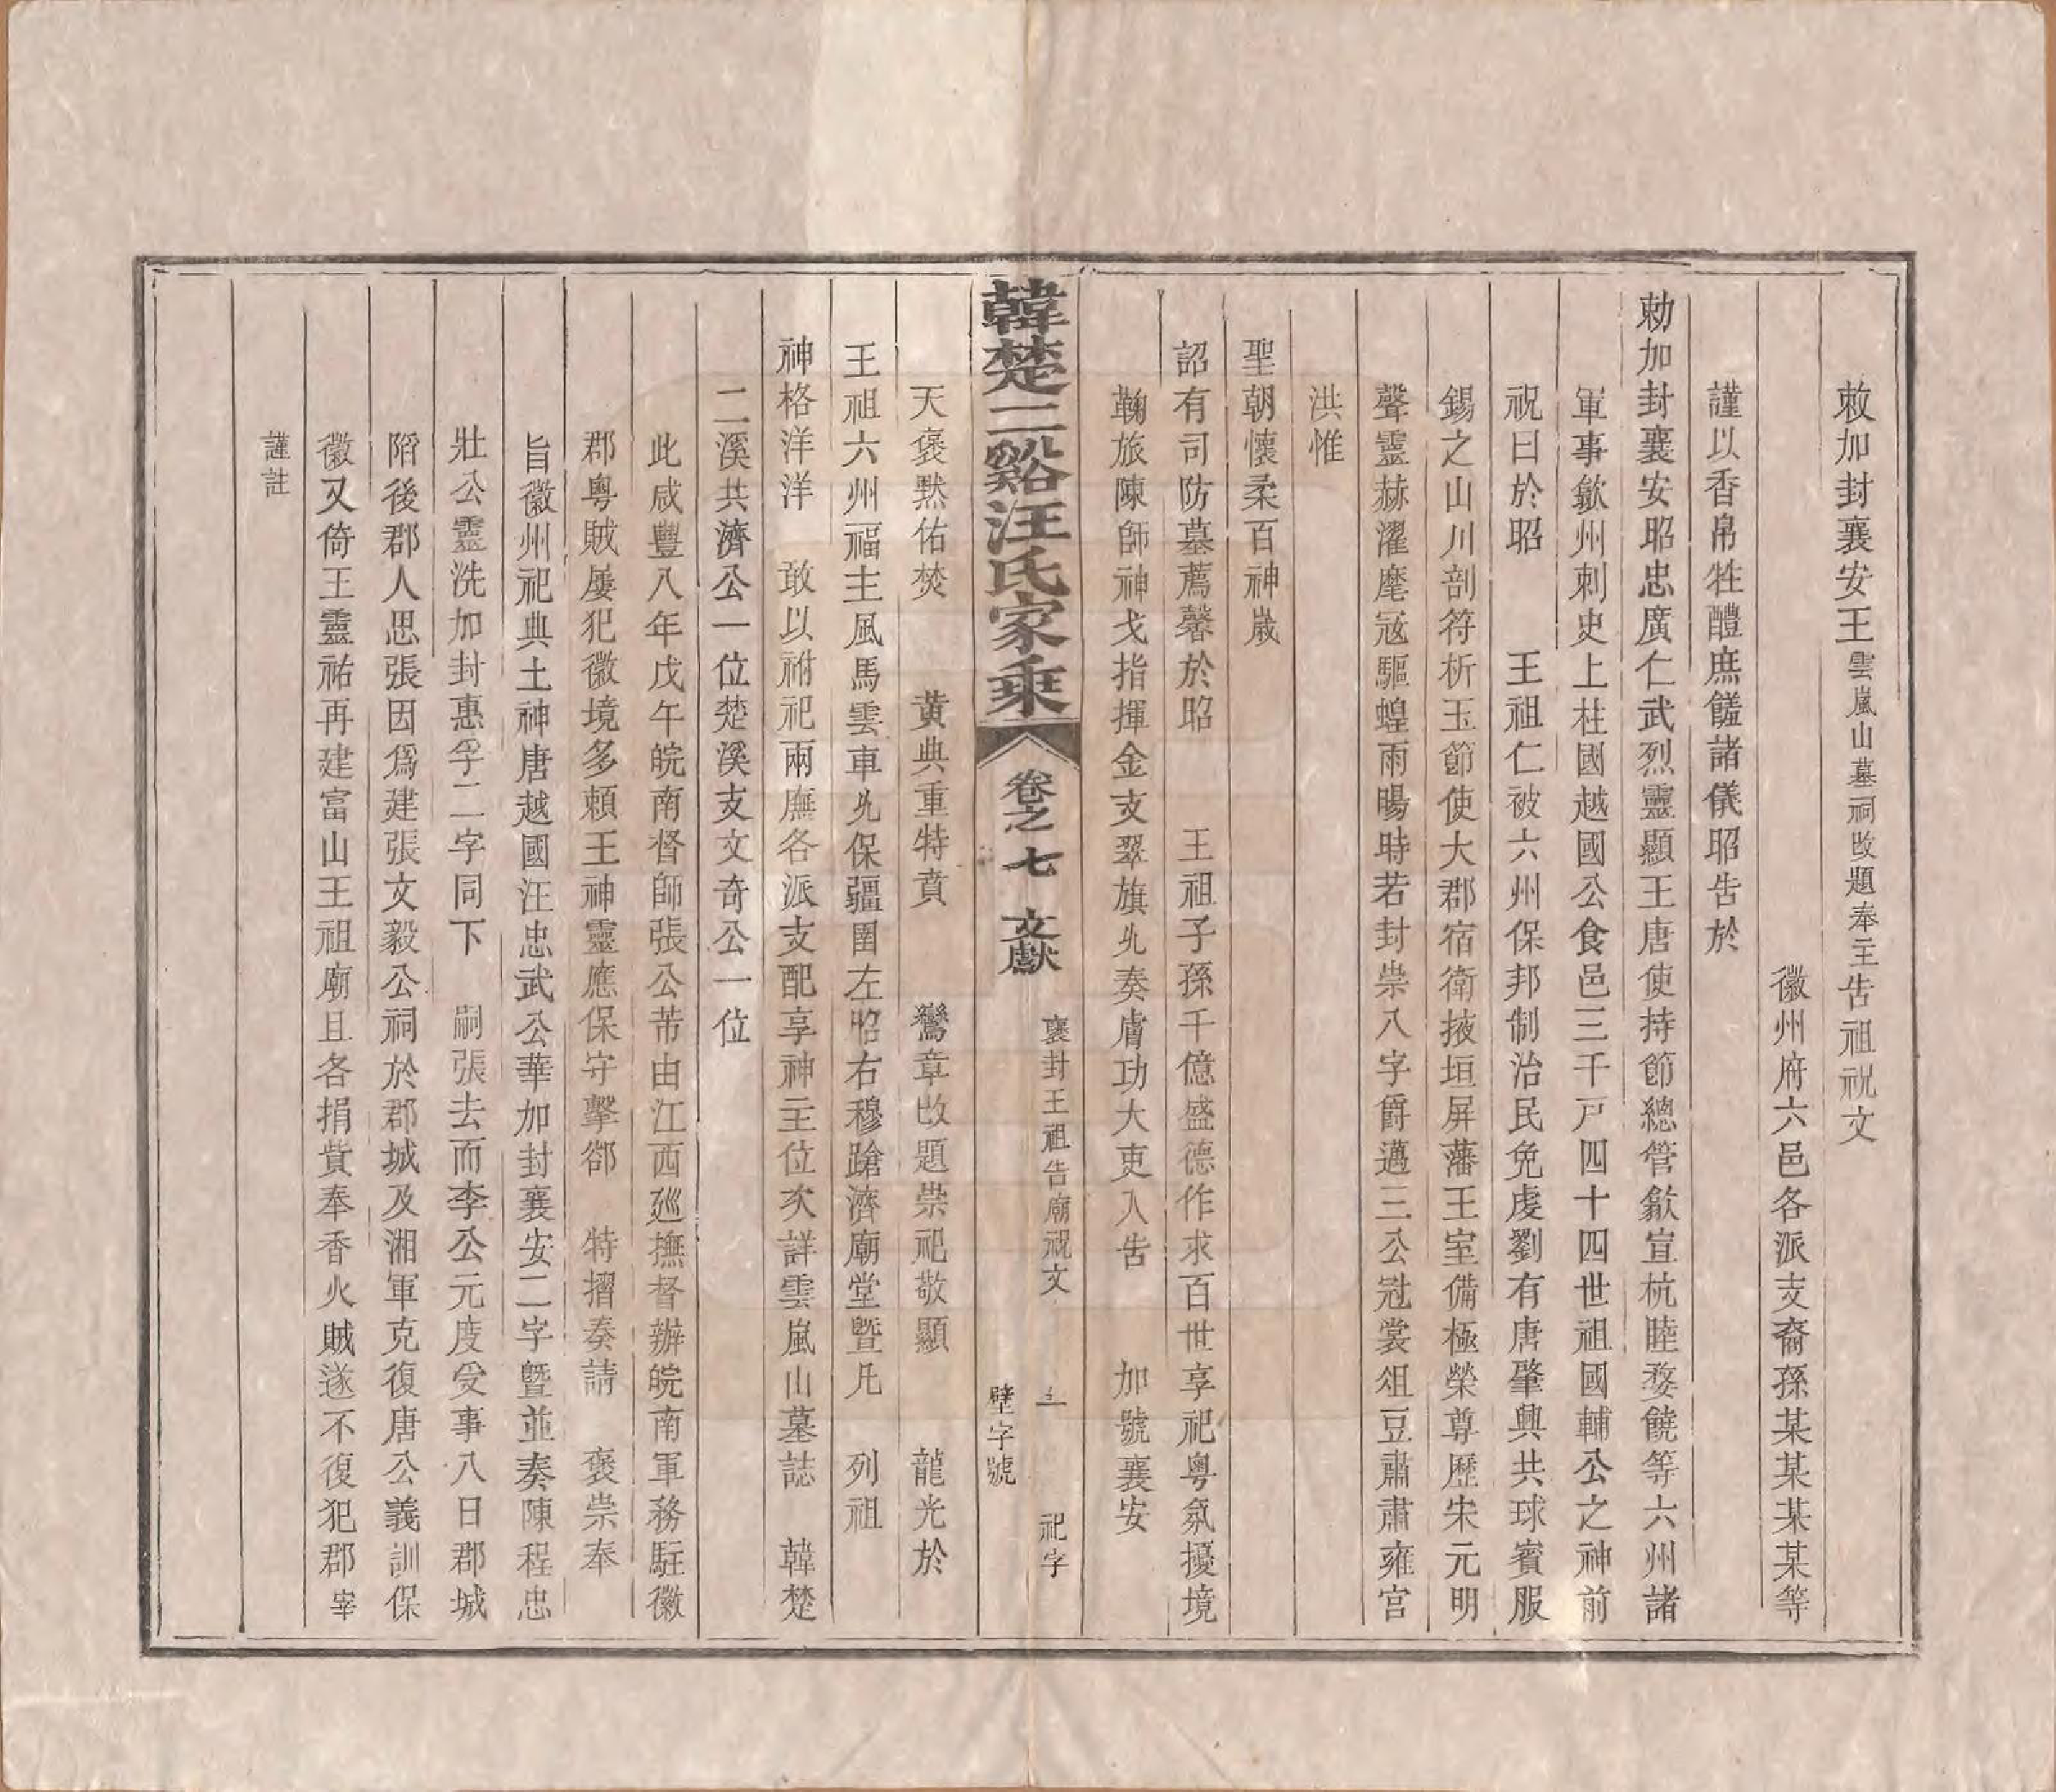 敕加封襄安王雲嵐山墓祠改題奉主告祖祝文
徽州府六邑各派支裔孫某某某某等
謹以香帛牲醴庶饈諸儀昭告於
勅加封襄安昭忠廣仁武烈靈顯王唐使持節總管歙宣杭睦婺饒等六州諸
軍事歙州刺史上柱國越國公食邑三千戸四十四世祖國輔公之神前
祝曰於昭 王祖仁被六州保邦制治民免虔劉有唐肇興共球賓服
錫之山川剖符析玉節使大郡宿衛掖垣屏藩王室備極榮尊歷朱元明
聲靈赫濯麾寇驅蝗雨暘時若封祟八字爵邁三公冠裳俎豆肅肅雍宮
洪惟
聖朝懷柔百神嵗
詔有司防墓薦馨於昭 王祖子孫千億盛德作求百世享祀粵氛擾境
鞠旅陳師神戈指揮金支翠旗兆奏膚功大吏入告 加號襄安
韓楚二谿汪氏家乘
卷之七 文獻
褒封王祖告廟祝文 五 祀字
壁字號
天褒黙佑焚 黄典重特賁 鸞章改題崇祀敬顯 龍光於
王祖六州福主風馬雲車兆保疆圉左昭右穆蹌濟廟堂暨凡 列祖
神格洋洋 敢以祔祀兩廡各派支配享神主位次詳雲嵐山墓誌 韓楚
二溪共濟公一位楚溪支文奇公一位
此咸豐八年戊午皖南督師張公芾由江西廵撫督辦皖南軍務駐徽
郡粵賊屢犯徽境多頼王神靈應保守擊郤 特摺奏請 褒祟奉
旨徽州祀典土神唐越國汪忠武公華加封襄安二字暨並奏陳程忠
壯公靈洗加封惠孚二字同下 嗣張去而李公元度受事八日郡城
陷後郡人思張因爲建張文毅公祠於郡城及湘軍克復唐公義訓保
徽又倚王靈祐再建富山王祖廟且各捐貲奉香火賊遂不復犯郡宰
謹註